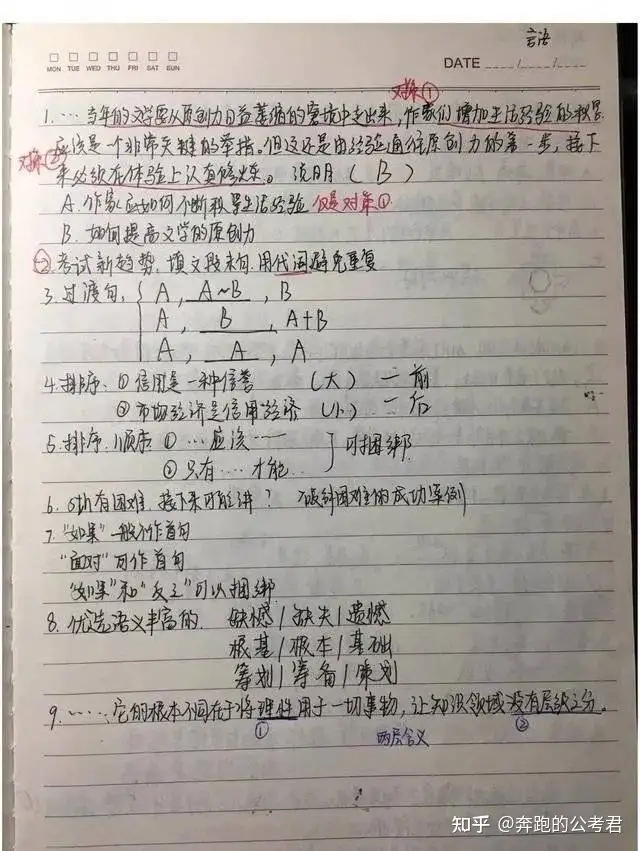 言语
MON TUE WED THU FRI SAT SUN
DATE
对策①
1.…当年的文学要从原创力日益萎缩的窘境中走出来,作家们增加生活经验的积累
应该是一个非常关键的举措。但这还是由经验通往原创力的第一步,接下
对策②
来必须在体验上认真修炼。说明(B)
A.作家应如何不断积累生活经验 仅是对策①
B.如何提高文学的原创力
2.考试新趋势,填文段末句,用代词避免重复
3.过渡句,{A,A~B,B
A,B,A+B
A,A,A
4.排序.①信用是一种信誉 (大)一前
②市场经济是信用经济 (小)一后
5.排序.顺序①…应该……
②只有…才能…]可捆绑
6.所有困难,接下来可能讲?困难的成功案例
7."如果"一般不作首句
"面对"可作首句
"如果"和"反之"可以捆绑
8.优选语义丰富的. 缺憾|缺失|遗憾
根基|根本|基础
筹划|筹备|策划
9.……,它的根本不同在于将理性用于一切事物,让知识领域没有层级之分。
① ②
两层含义
知乎 @奔跑的公考君